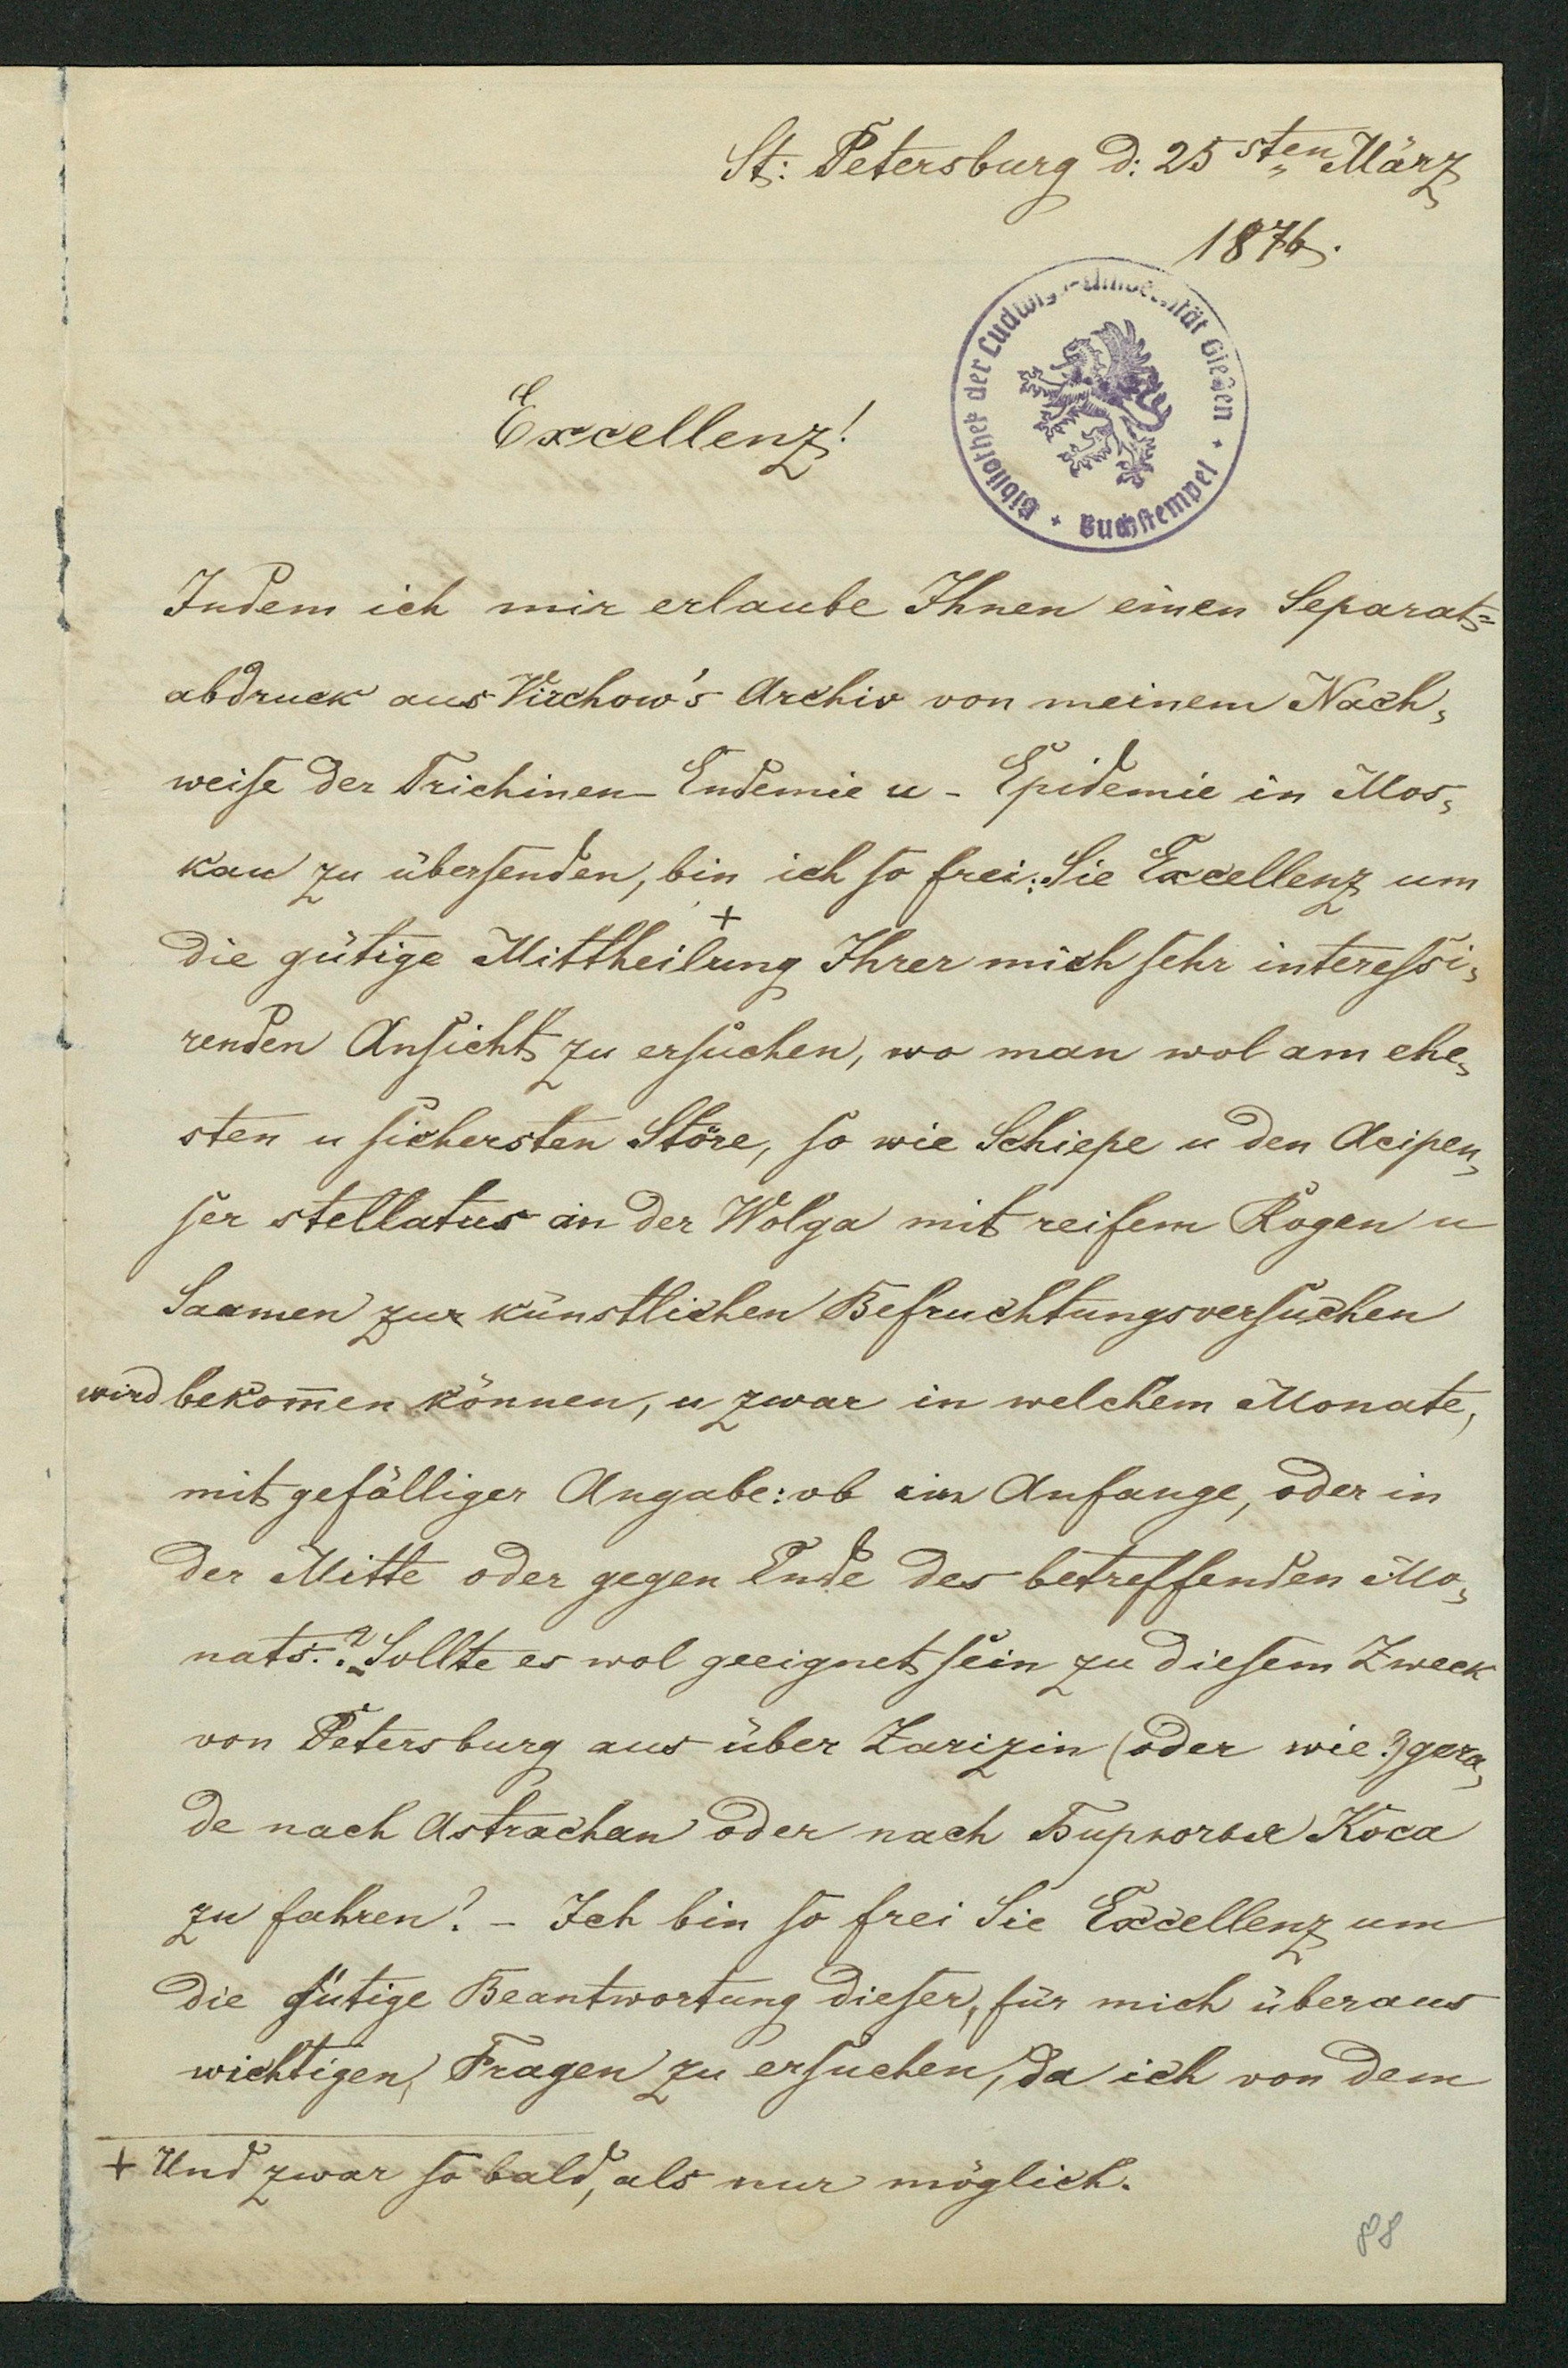 St: Petersburg d: 25 sten März
1876.
Bibliothek der Ludwigs-Universität Gießen + Buchstempel +
Excellenz!
Indem ich mir erlaube Ihnen einen Separat=
abdruck aus Virchow's Archiv von meinem Nach„
weiſe der Trichinen-Endemie u - Epidemie in Mos„
kau zu überſenden, bin ich ſo frei: Sie Excellenz um
die gütige Mittheilung + Ihrer mich ſehr intereſsi„
renden Anſicht zu erſuchen, wo man wol am ehe„
sten u ſichersten Störe, ſo wie Schiepe u den Acipen„
ſer stellatus an der Wolga mit reifem Rogen u
Saamen zur künstlichen Befruchtungsverſuchen
wird bekom̄en können, u zwar in welchem Monate,
mit gefälliger Angabe: ob im Anfange, oder in
der Mitte oder gegen Ende des betreffenden Mo„
nats.? Sollte es wol geeignet ſein zu dieſem Zweck
von Petersburg aus über Zarizin (oder wie?) gera„
de nach Astrachan oder nach Коса
zu fahren? - Ich bin ſo frei Sie Excellenz um
die gütige Beantwortung dieſer, für mich überaus
wichtigen, Fragen zu erſuchen, da ich von dem
+ Und zwar ſo bald, als nur möglich.
88